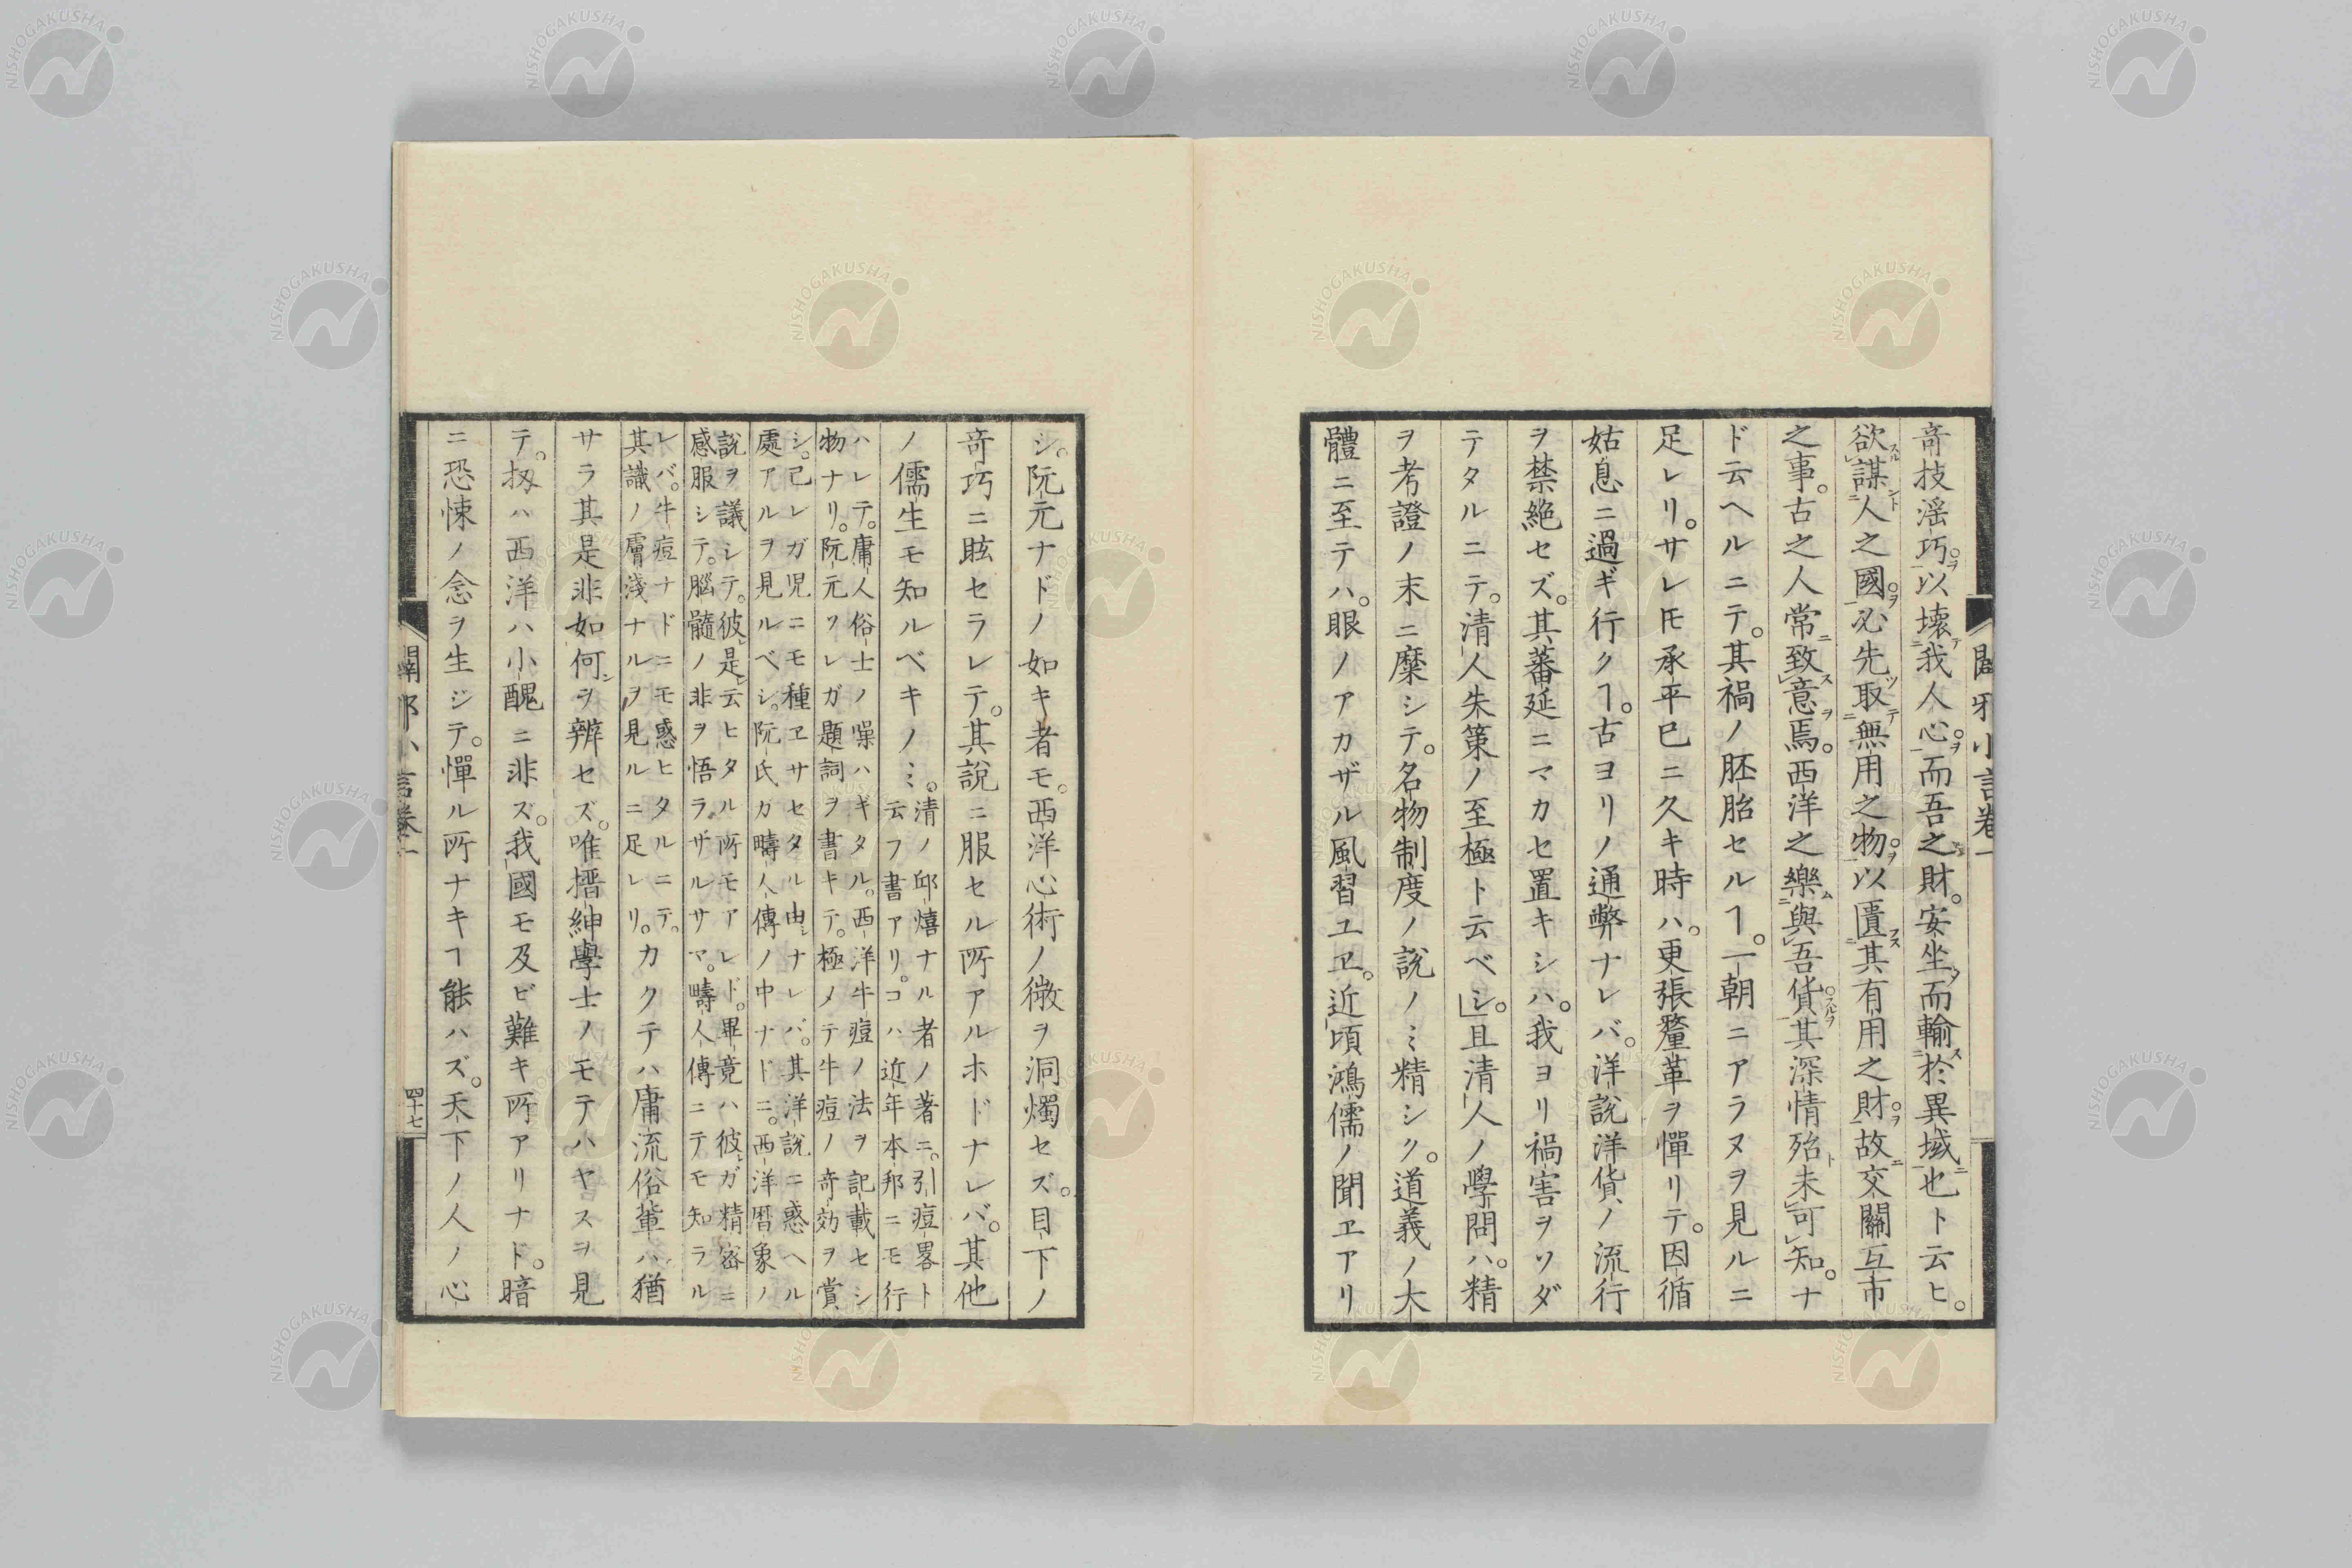 奇技淫巧。以壊我人心。而吾之財。安坐而輸於異域也ト云ヒ。
欲謀人之國。必先取無用之物。以匱其有用之財。故交關互市
之事。古之人常致意焉。西洋之樂與吾貨。其深情殆未可知。ナ
ド云ヘルニテ。其禍ノ胚胎セルヿ。一朝ニアラヌヲ見ルニ
足レリ。サレ𪜈承平已ニ久キ時ハ。更張釐革ヲ憚リテ。因循
姑息ニ過ギ行クヿ。古ヨリノ通弊ナレバ。洋說洋貨ノ流行
ヲ禁絶セズ。其蕃延ニマカセ置キシハ。我ヨリ禍害ヲソダ
テタルニテ。清人失策ノ至極ト云ベシ。且清人ノ學問ハ。精
ヲ考證ノ末ニ糜シテ。名物制度ノ說ノミ精シク。道義ノ大
體ニ至テハ。眼ノアカザル風習ユヱ。近頃鴻儒ノ聞ヱアリ
シ。阮元ナドノ如キ者モ。西洋心術ノ微ヲ洞燭セズ。目下ノ
奇巧ニ眩セラレテ。其說ニ服セル所アルホドナレバ。其他
ノ儒生モ知ルベキノミ。清ノ邱熺ナル者ノ著ニ。引痘畧ト
云フ書アリ。コハ近年本邦ニモ行
ハレテ。庸人俗士ノ噪ハギタル。西洋牛痘ノ法ヲ記載セシ
物ナリ。阮元ソレガ題詞ヲ書キテ。極メテ牛痘ノ奇効ヲ賞
シ。己レガ児ニモ種ヱサセタル由ナレバ。其洋說ニ惑ヘル
處アルヲ見ルベシ。阮氏ガ疇人傳ノ中ナドニ。西洋暦象ノ
說ヲ議シテ。彼是云ヒタル所モアレド。畢竟ハ彼ガ精密ニ
感服シテ。腦髓ノ非ヲ悟ラザルサマ。疇人傳ニテモ知ラル
レバ。牛痘ナドニモ惑ヒタルニテ。
其識ノ膚淺ナルヲ見ルニ足レリ。カクテハ庸流俗輩ハ猶
サラ其是非如何ヲ辨セズ。唯搢紳學士ノモテハヤスヲ見
テ。扨ハ西洋ハ小醜ニ非ズ。我國モ及ビ難キ所アリナド。暗
ニ恐悚ノ念ヲ生ジテ。憚ル所ナキヿ能ハズ。天下ノ人ノ心
闢邪小言卷一
四十七